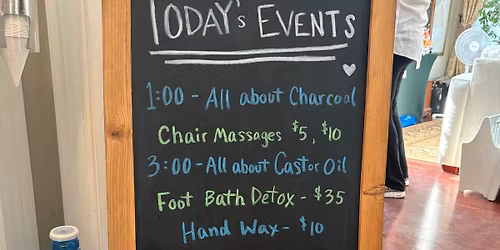 TODAY's EVENTS
1:00 - All about Charcoal
Chair Massages $5, $10
3:00 - All about Castor Oil
Foot Bath Detox - $35
Hand Wax - $10